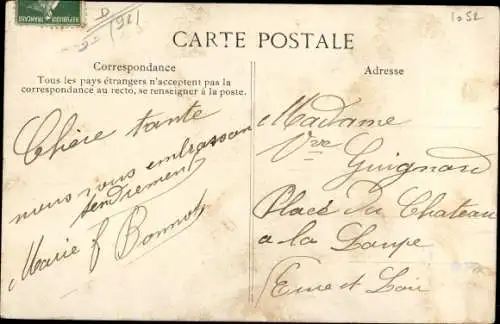 RÉPUBLIQUE FRANÇAISE
D
(92)
1052
CARTE POSTALE
Correspondance
Tous les pays étrangers n'acceptent pas la
correspondance au recto, se renseigner à la poste.
Adresse
Chère tante
nous vous embrassons
tendrement
Marie f Bonnot
Madame
Vve Guignard
Place du Chateau
a la Loupe
Eure et Loir